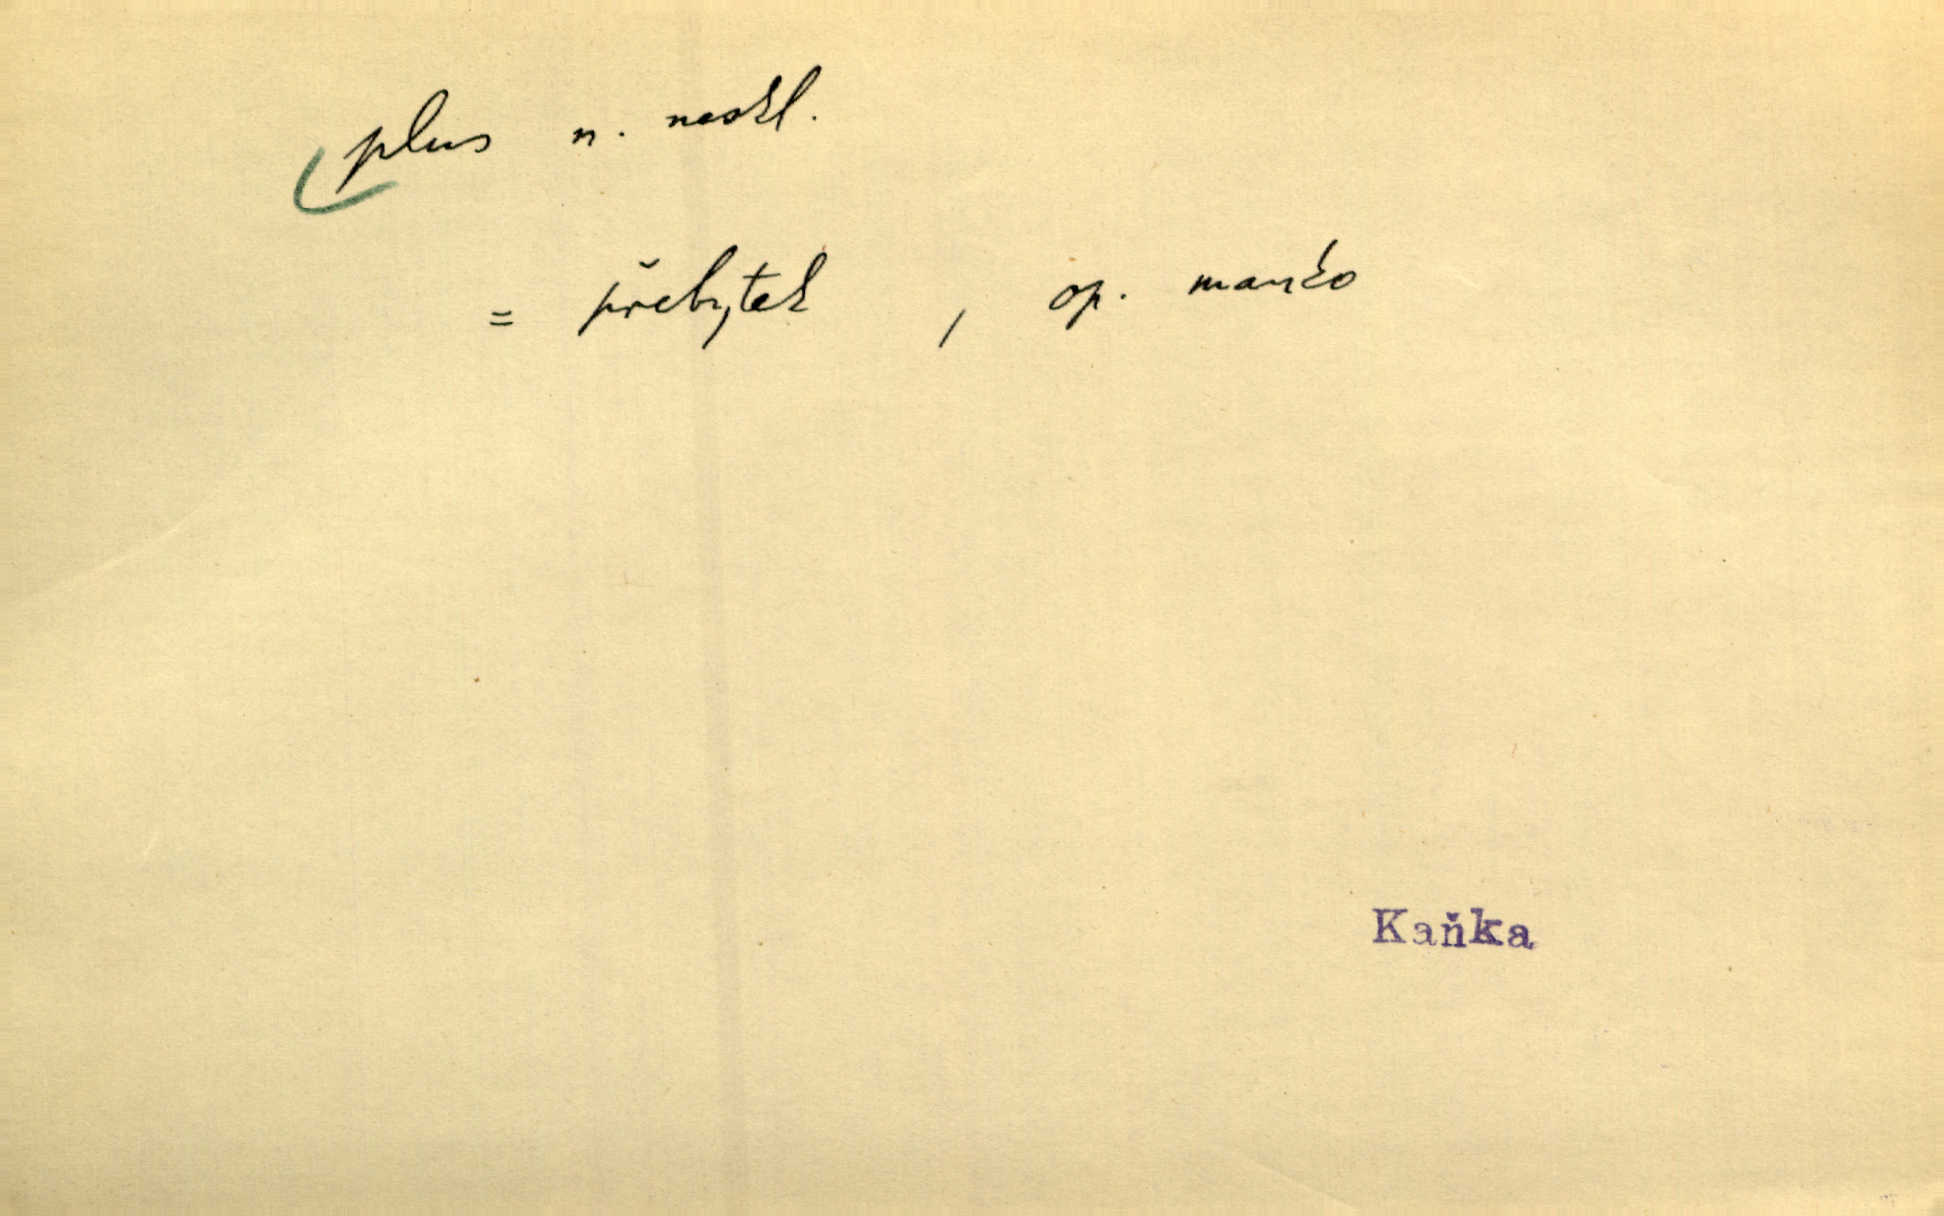 plus n. neskl.
= přebytek , op. manko
Kaňka